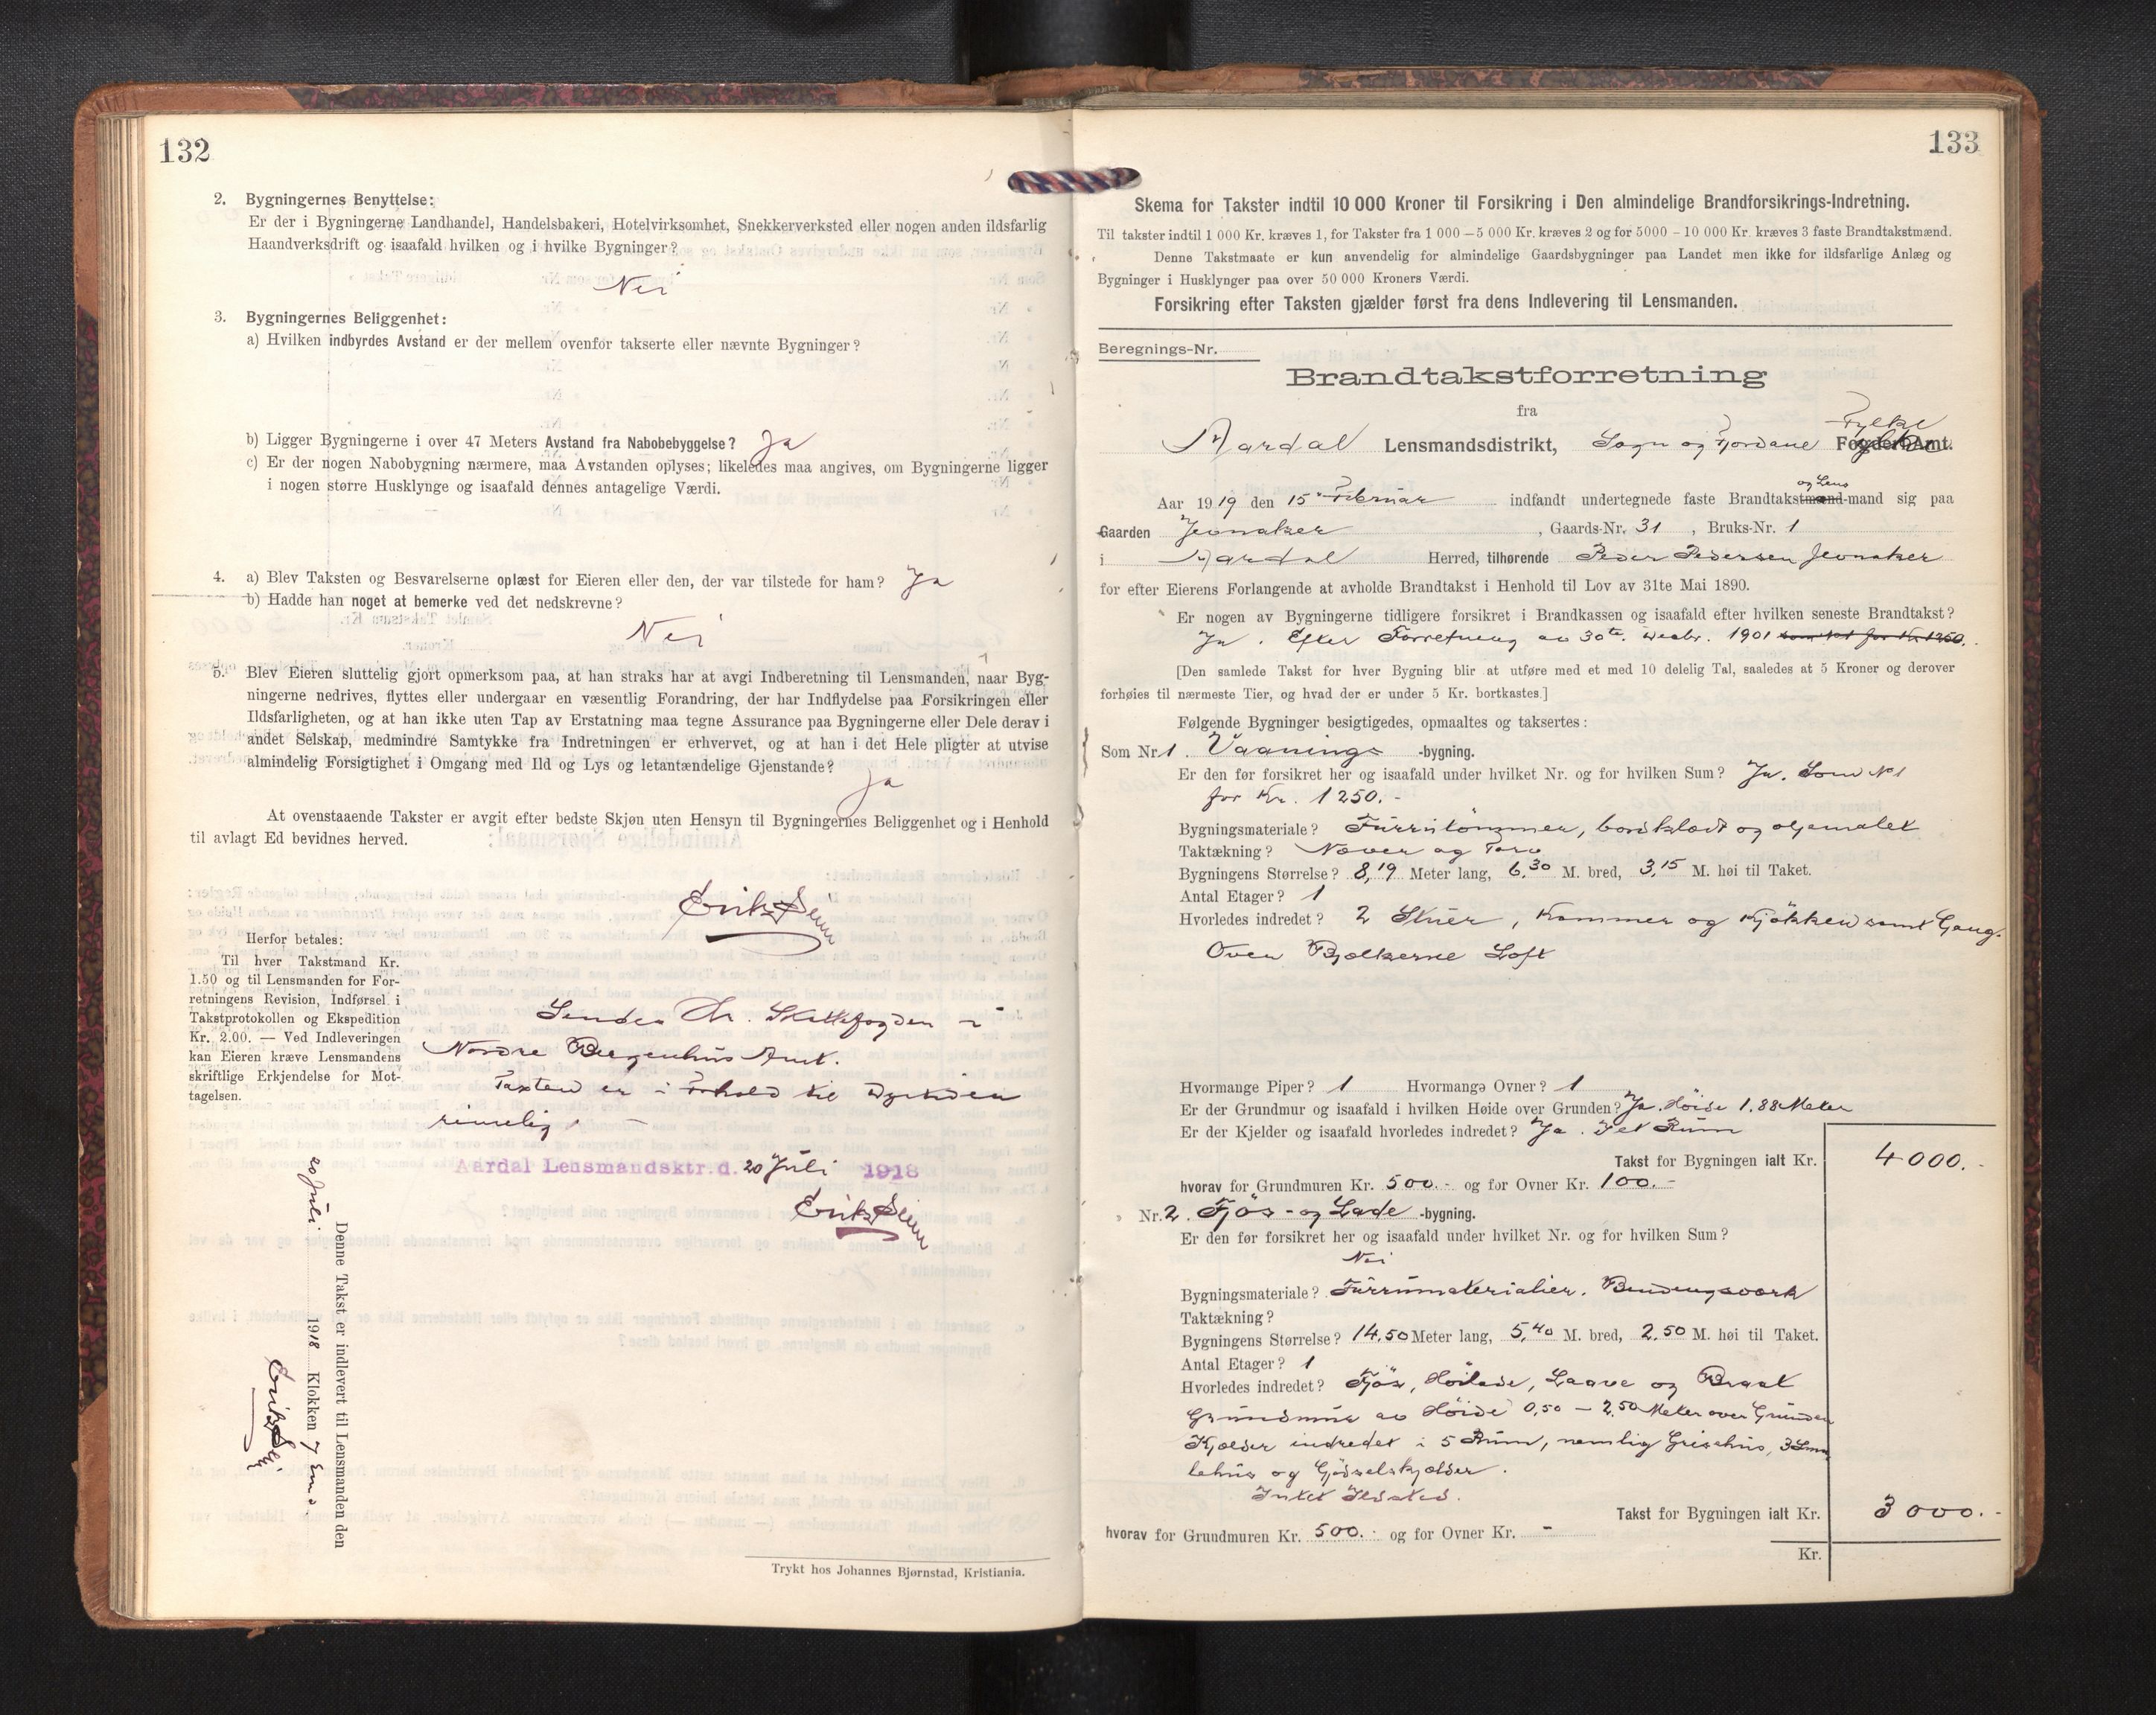 132
2. Bygningernes Benyttelse:
Er der i Bygningerne Landhandel, Handelsbakeri, Hotelvirksomhet, Snekkerverksted eller nogen anden ildsfarlig
Haandverksdrift og isaafald hvilken og i hvilke Bygninger?
Nei
3. Bygningernes Beliggenhet:
a) Hvilken indbyrdes Avstand er der mellem ovenfor takserte eller nævnte Bygninger?
b) Ligger Bygningerne i over 47 Meters Avstand fra Nabobebyggelse? Ja
c) Er der nogen Nabobygning nærmere, maa Avstanden oplyses; likeledes maa angives, om Bygningerne ligger
i nogen større Husklynge og isaafald dennes antagelige Værdi.
4. a) Blev Taksten og Besvarelserne oplæst for Eieren eller den, der var tilstede for ham? Ja
b) Hadde han noget at bemerke ved det nedskrevne?
Nei
5. Blev Eieren sluttelig gjort opmerksom paa, at han straks har at avgi Indberetning til Lensmanden, naar Byg-
ningerne nedrives, flyttes eller undergaar en væsentlig Forandring, der har Indflydelse paa Forsikringen eller
Ildsfarligheten, og at han ikke uten Tap av Erstatning maa tegne Assurance paa Bygningerne eller Dele derav i
andet Selskap, medmindre Samtykke fra Indretningen er erhvervet, og at han i det Hele pligter at utvise
almindelig Forsigtighet i Omgang med Ild og Lys og letantændelige Gjenstande?
Ja
At ovenstaaende Takster er avgit efter bedste Skjøn uten Hensyn til Bygningernes Beliggenhet og i Henhold
til avlagt Ed bevidnes herved.
Erik Seim
Herfor betales:
Til hver Takstmand Kr.
1.50 og til Lensmanden for For-
retningens Revision, Indførsel i
Takstprotokollen og Ekspedition
Kr. 2.00. — Ved Indleveringen
kan Eieren kræve Lensmandens
skriftlige Erkjendelse for Mot-
tagelsen.
Sendes Hr. Skattefogden i
Nordre Bergenhus Amt.
Taxten er i Forhold til Dyrtiden
rimelig.
Aardal Lensmandsktr. d. 20 Juli 1918
Erik Seim
Denne Takst er indlevert til Lensmanden den
20 Juli 1918 Klokken 7 Em.
Erik Seim
Trykt hos Johannes Bjørnstad, Kristiania.
133
Skema for Takster indtil 10 000 Kroner til Forsikring i Den almindelige Brandforsikrings-Indretning.
Til takster indtil 1 000 Kr. kræves 1, for Takster fra 1 000 – 5 000 Kr. kræves 2 og for 5000 – 10 000 Kr. kræves 3 faste Brandtakstmænd.
Denne Takstmaate er kun anvendelig for almindelige Gaardsbygninger paa Landet men ikke for ildsfarlige Anlæg og
Bygninger i Husklynger paa over 50 000 Kroners Værdi.
Forsikring efter Taksten gjælder først fra dens Indlevering til Lensmanden.
Beregnings-Nr.
Brandtakstforretning
fra
Fylke
Aardal Lensmandsdistrikt, Sogn og Fjordane Fogderi, Amt.
og Lens
Aar 1919 den 15 Februar indfandt undertegnede faste Brandtakstmænd-mand sig paa
Gaarden Jevnaker, Gaards-Nr. 31, Bruks-Nr. 1
i Aardal Herred, tilhørende Peder Pedersen Jevnaker
for efter Eierens Forlangende at avholde Brandtakst i Henhold til Lov av 31te Mai 1890.
Er nogen av Bygningerne tidligere forsikret i Brandkassen og isaafald efter hvilken seneste Brandtakst?
Ja. Efter Forretning av 30te Decbr. 1901
[Den samlede Takst for hver Bygning blir at utføre med et med 10 delelig Tal, saaledes at 5 Kroner og derover
forhøies til nærmeste Tier, og hvad der er under 5 Kr. bortkastes.]
Følgende Bygninger besigtigedes, opmaaltes og taksertes:
Som Nr. 1. Vaanings -bygning.
Er den før forsikret her og isaafald under hvilket Nr. og for hvilken Sum? Ja. Som No 1
for Kr. 1250.-
Bygningsmateriale? Furutömmer, bordklædt og oljemalet
Taktækning? Næver og Torv
Bygningens Størrelse? 8,19 Meter lang, 6,30 M. bred, 3,15 M. høi til Taket.
Antal Etager? 1
Hvorledes indredet? 2 Stuer, Kammer og Kjökken samt Gang.
Over Bjelkerne Loft
Hvormange Piper? 1 Hvormange Ovner? 1
Er der Grundmur og isaafald i hvilken Høide over Grunden? Ja. Höide 1.88 Meter
Er der Kjelder og isaafald hvorledes indredet? Ja. I et Rum
Takst for Bygningen ialt Kr. 4000.-
hvorav for Grundmuren Kr. 500.- og for Ovner Kr. 100.-
Nr. 2. Fjös- og Lade -bygning.
Er den før forsikret her og isaafald under hvilket Nr. og for hvilken Sum?
Nei
Bygningsmateriale? Furumaterialier. Bindingsverk
Taktækning?
Bygningens Størrelse? 14.50 Meter lang, 5,40 M. bred, 2.50 M. høi til Taket.
Antal Etager? 1
Hvorledes indredet? Fjös, Höilade, Laave og
Grundmur av Höide 0,50 – 2,50 Meter over Grunden
Kjelder indredet i 5 Rum, nemlig Grisehus, 3 Sma-
lehus og Gjödselskjelder.
Intet Ildsted.
Takst for Bygningen ialt Kr. 3000.-
hvorav for Grundmuren Kr. 500.- og for Ovner Kr. -
Kr.